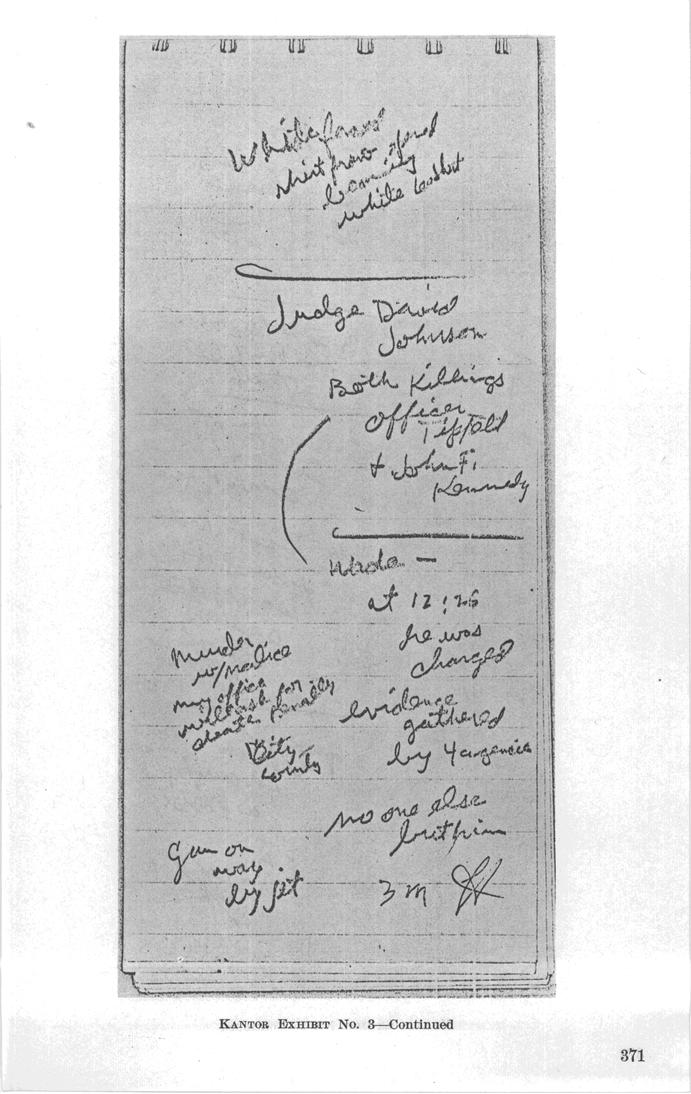 White faced
shirt front opened
white t-shirt
Judge David
Johnson
Both Killings
Officer
Tippett
+ John F.
Kennedy
Wade —
at 12:26
he was
charged
Murder
w/malice
my office
will ask for
death penalty
City
County
evidence
gathered
by 4 agencies
no one else
but him
Gun on
way
by jet
3 m
KANTOR EXHIBIT No. 3—Continued
371